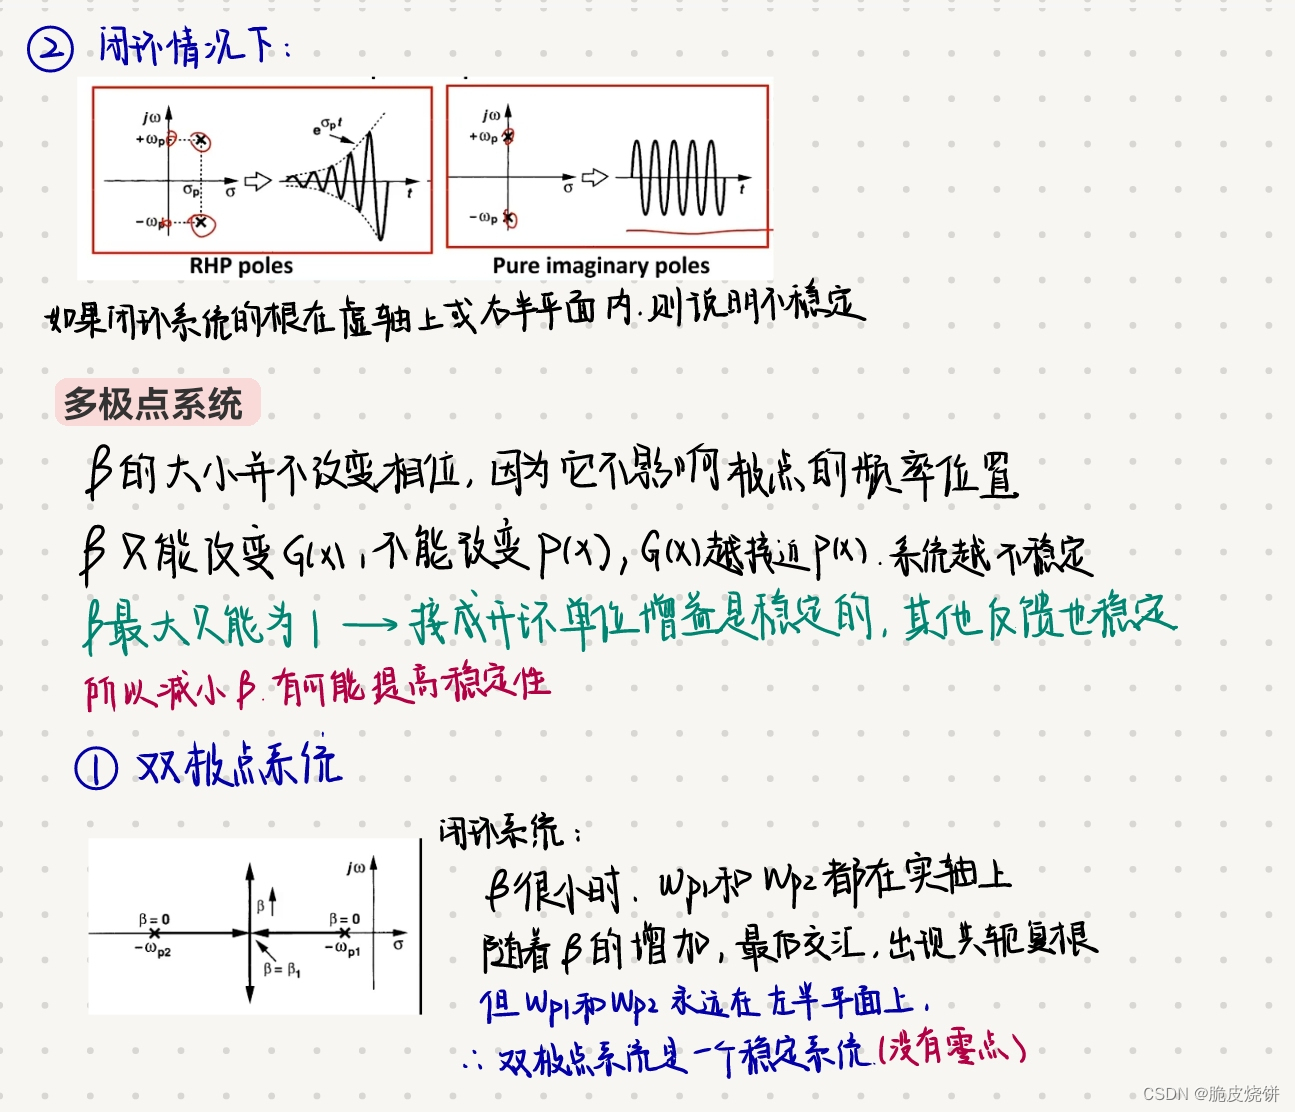 ② 闭环情况下:
jω
+ωp
σp
σ
-ωp
e^σpt
t
RHP poles
jω
+ωp
σ
-ωp
t
Pure imaginary poles
如果闭环系统的根在虚轴上或右半平面内.则说明不稳定
多极点系统
β的大小并不改变相位,因为它不影响极点的频率位置
β只能改变G(x),不能改变P(x),G(x)越接近P(x).系统越不稳定
β最大只能为1 → 接成开环单位增益是稳定的,其他反馈也稳定
所以减小β.有可能提高稳定性
① 双极点系统
jω
β
β=0
β=0
-ωp2
-ωp1
σ
β=β1
闭环系统:
β很小时.Wp1和Wp2都在实轴上
随着β的增加,最后交汇,出现共轭复根
但Wp1和Wp2永远在左半平面上,
∴ 双极点系统是一个稳定系统.(没有零点)
CSDN @脆皮烧饼